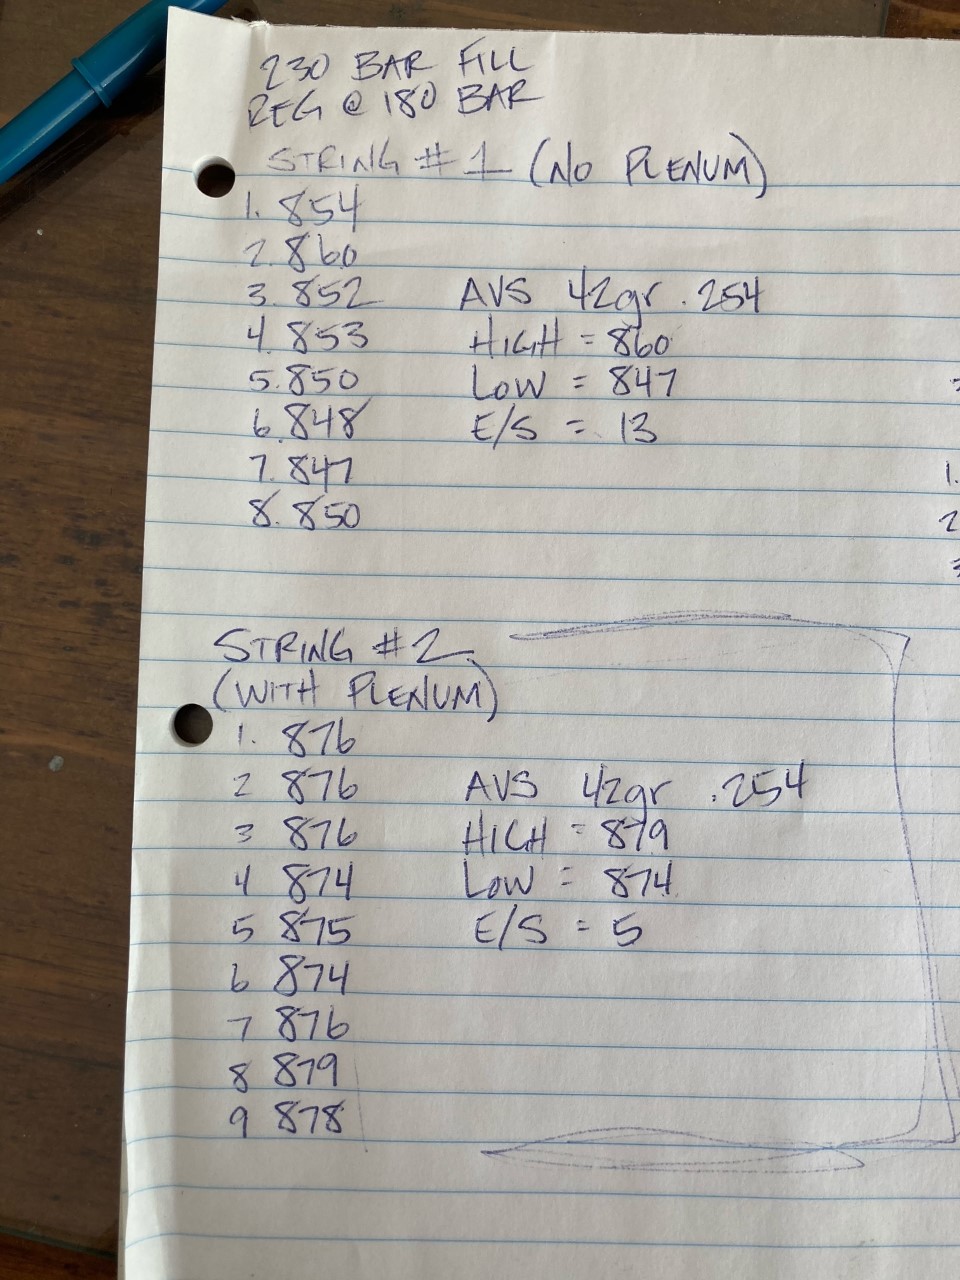 230 BAR FILL
REG @ 180 BAR
STRING #1 (NO PLENUM)
1. 854
2. 860
3. 852 AVS 42gr .254
4. 853 HIGH = 860
5. 850 LOW = 847
6. 848 E/S = 13
7. 847
8. 850
STRING #2
(WITH PLENUM)
1. 876
2 876 AVS 42gr .254
3 876 HIGH = 879
4 874 LOW = 874
5 875 E/S = 5
6 874
7 876
8 879
9 878
1.
2